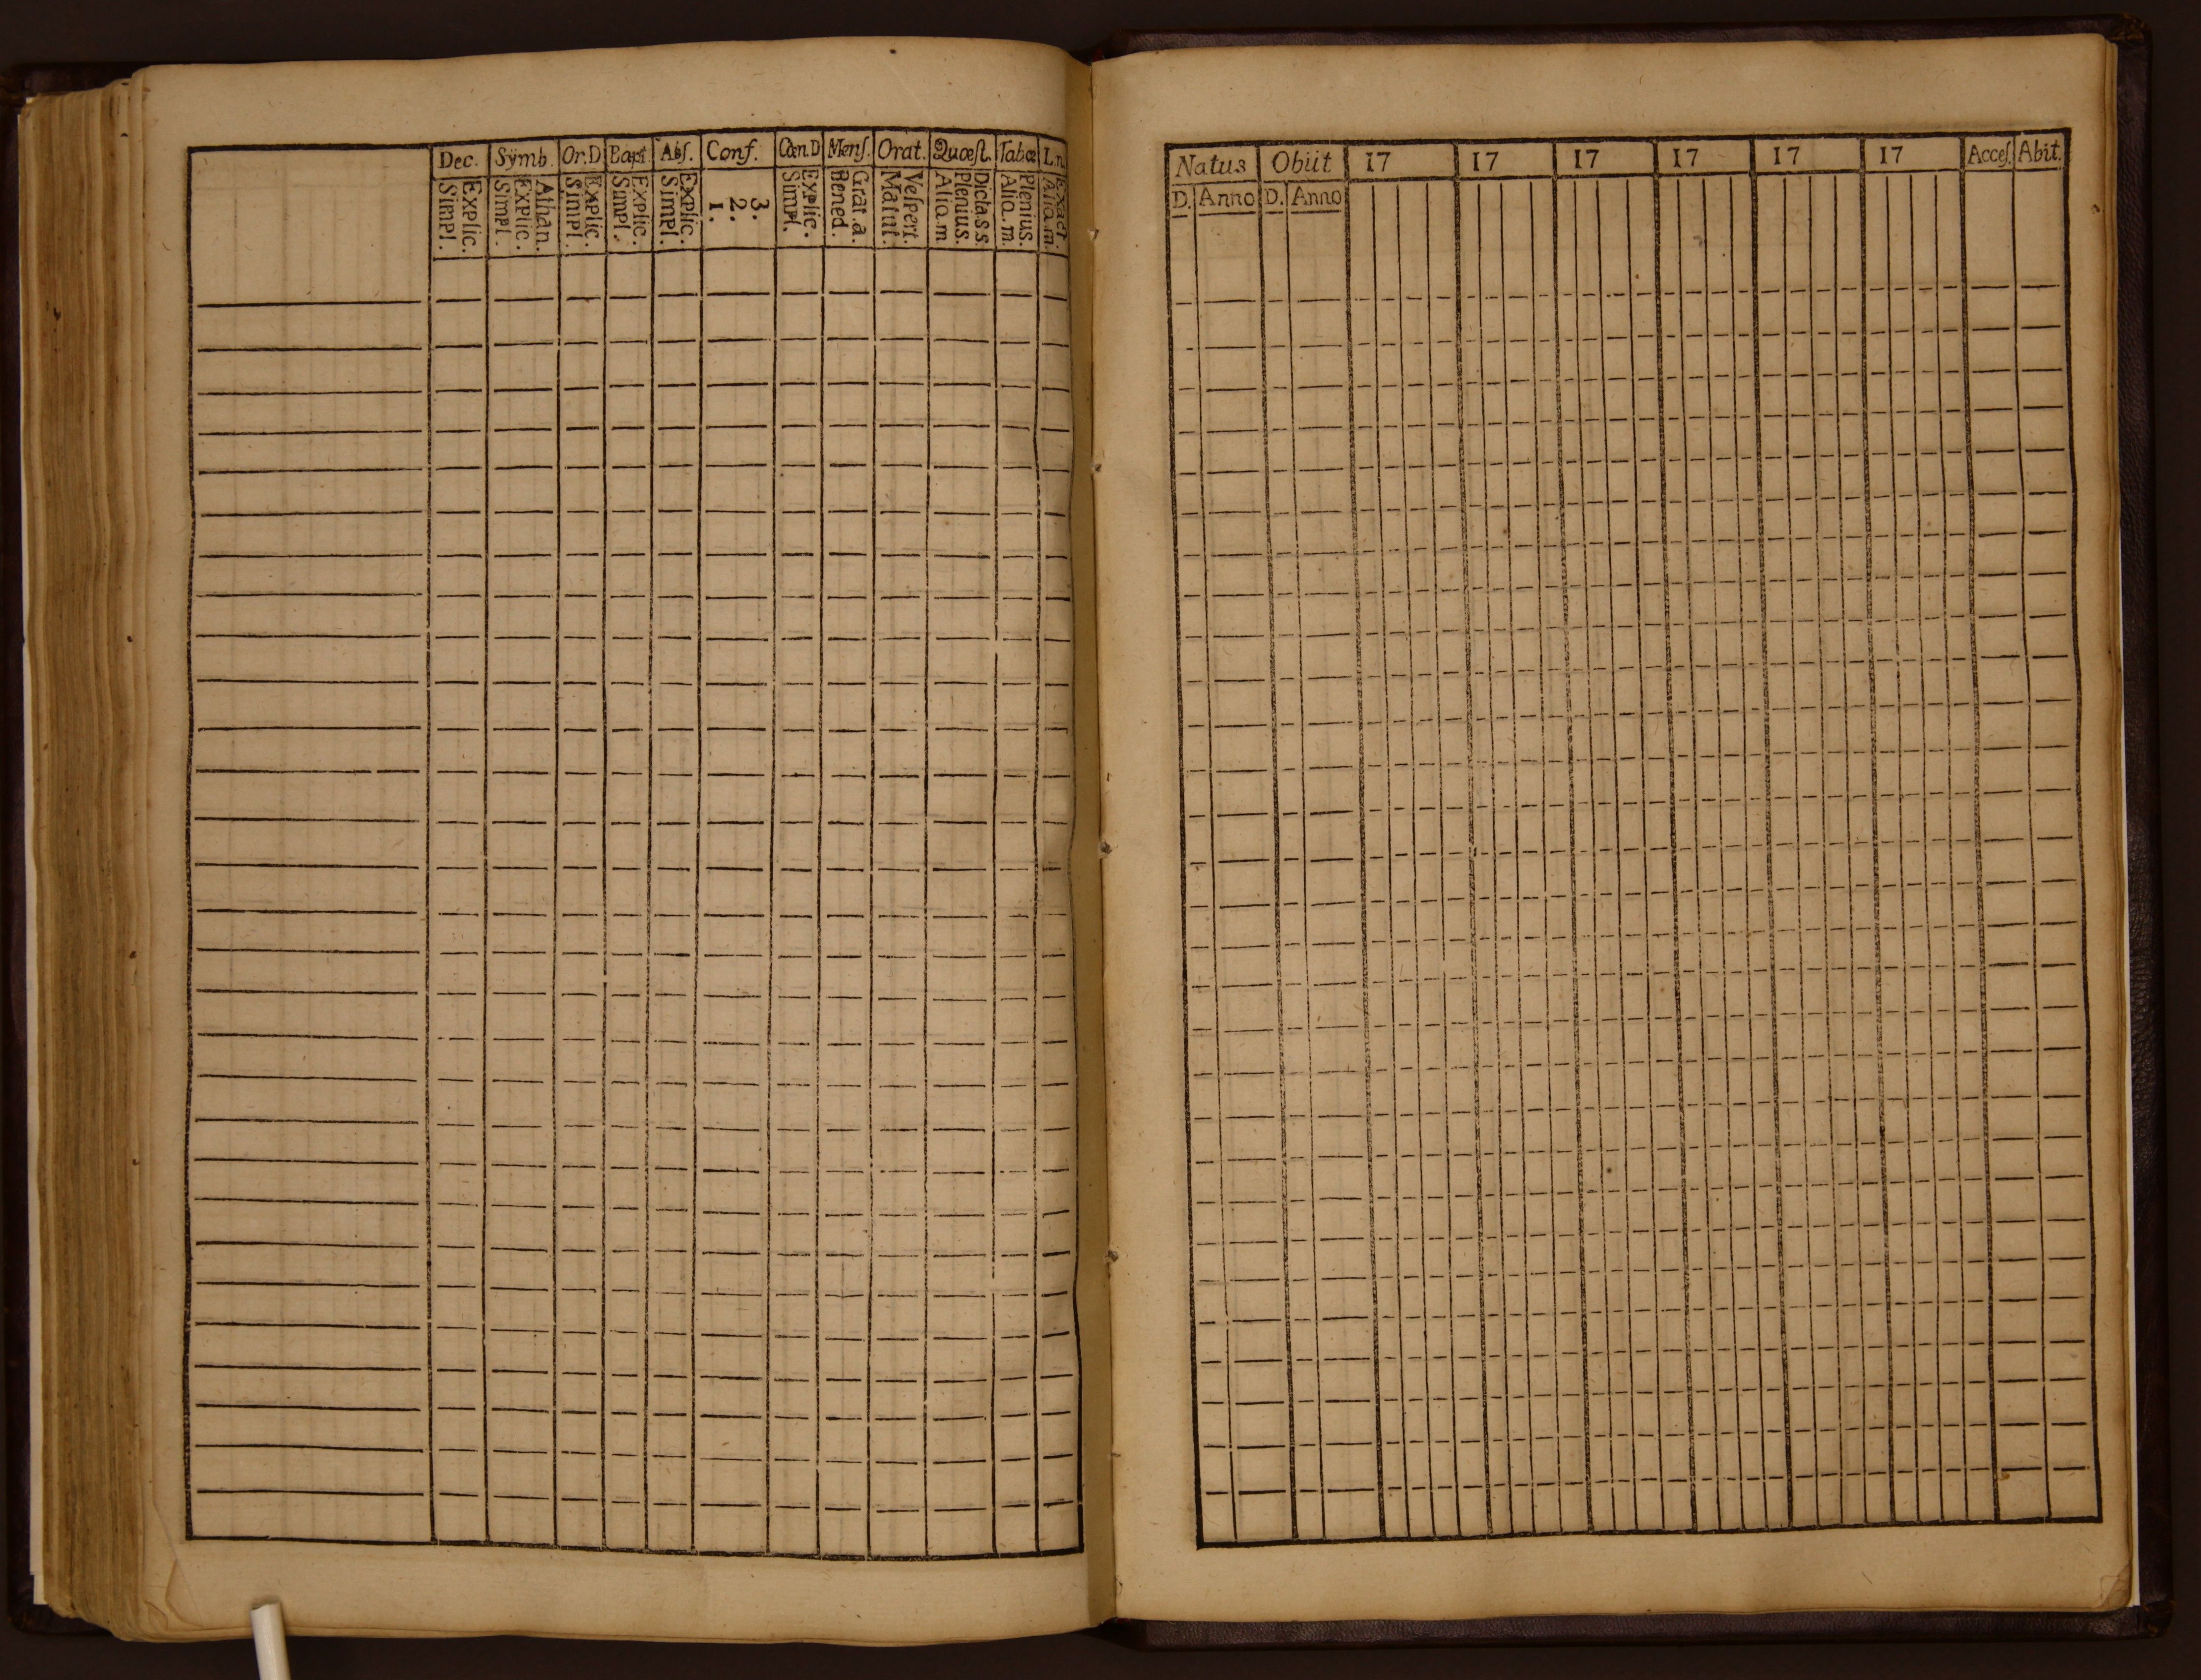 Dec. Sÿmb. Or.D. Bapt. Abſ. Conf. Cœn.D Menſ. Orat. Quæſt. Tabœ L.n
Simpl. Explic. Simpl. Explic. Athan. Simpl. Explic. Simpl. Explic. Simpl. Explic. 1. 2. 3. Simpl. Explic. Bened. Grat.a. Matut. Veſpert. Alia.m Plenius. Dicta.s s. Alia.m. Plenius. Alia.m. Exact.
Natus Obiit 17 17 17 17 17 17 Acceſ. Abit.
D. Anno D. Anno